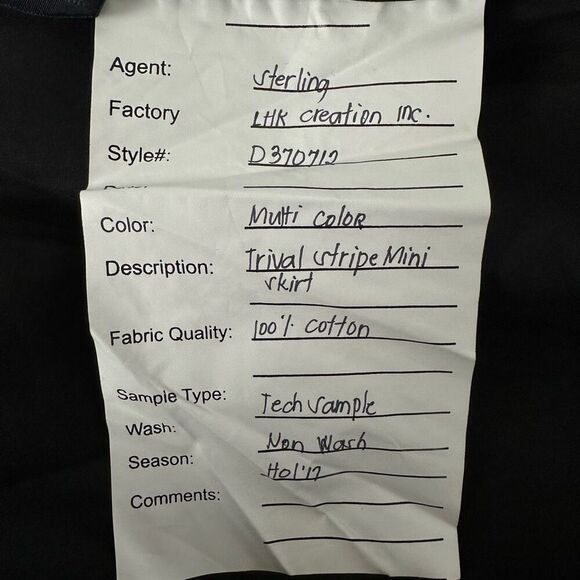 Agent: Sterling
Factory LHK Creation Inc.
Style#: D370712
Color: Multi color
Description: Trival stripe Mini
skirt
Fabric Quality: 100% cotton
Sample Type: Tech sample
Wash: Non Wash
Season: Hol'17
Comments: